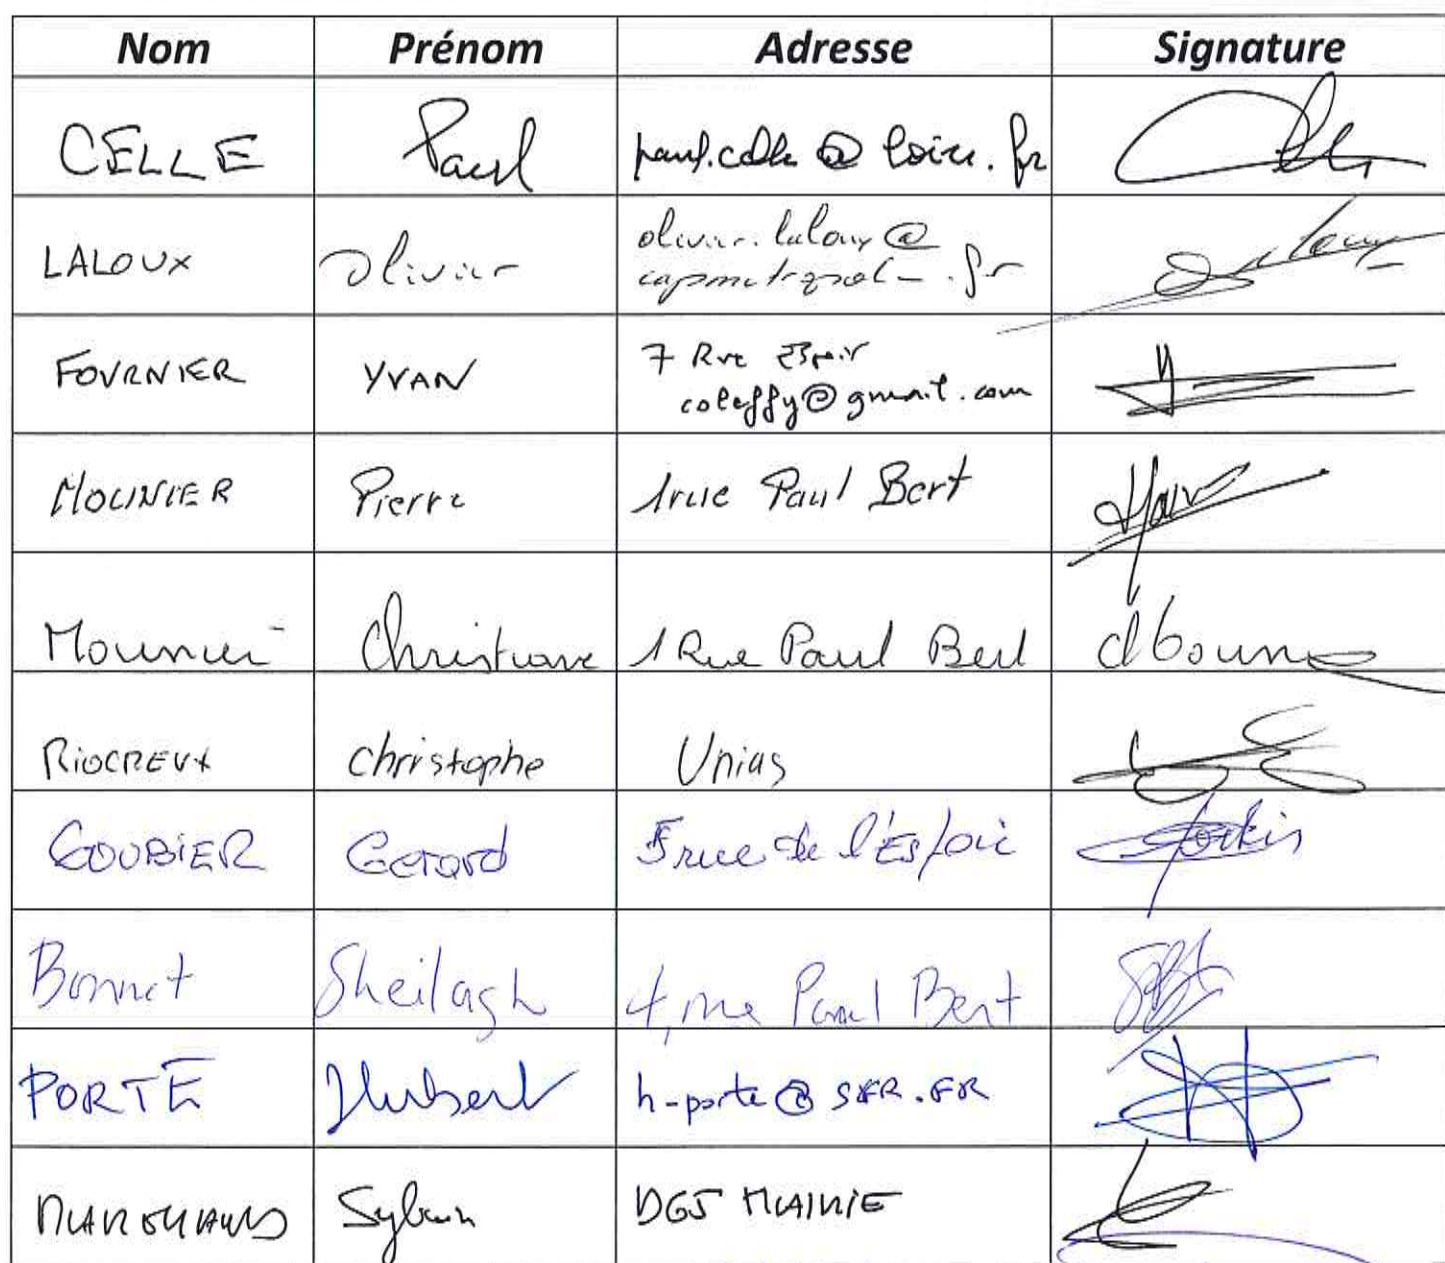 Nom Prénom Adresse Signature
CELLE Paul paul.celle@loire.fr
LALOUX Olivier olivier.laloux@
capmetropole.fr
FOURNIER YVAN 7 Rue Espoir
coleffy@gmail.com
MOUNIER Pierre 1 rue Paul Bert
Mounier Christiane 1 Rue Paul Bert
RIOCREUX Christophe Unias
GOUBIER Gerard 5 rue de l'Espoir
Bonnet Sheilagh 4, rue Paul Bert
PORTE Hubert h-porte@SFR.FR
MARCHAND Sylvain DGS MAIRIE